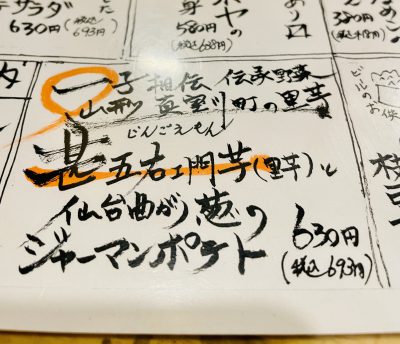 サラダ
630円
(税込693円)
ホヤの
580円
(税込638円)
あり
380円
一子相伝 伝承野菜
山形 真室川町の里芋
じんごえもん
甚五右ヱ門芋(里芋)と
仙台曲がり葱の
ジャーマンポテト
630円
(税込693円)
ビールのお供
枝豆